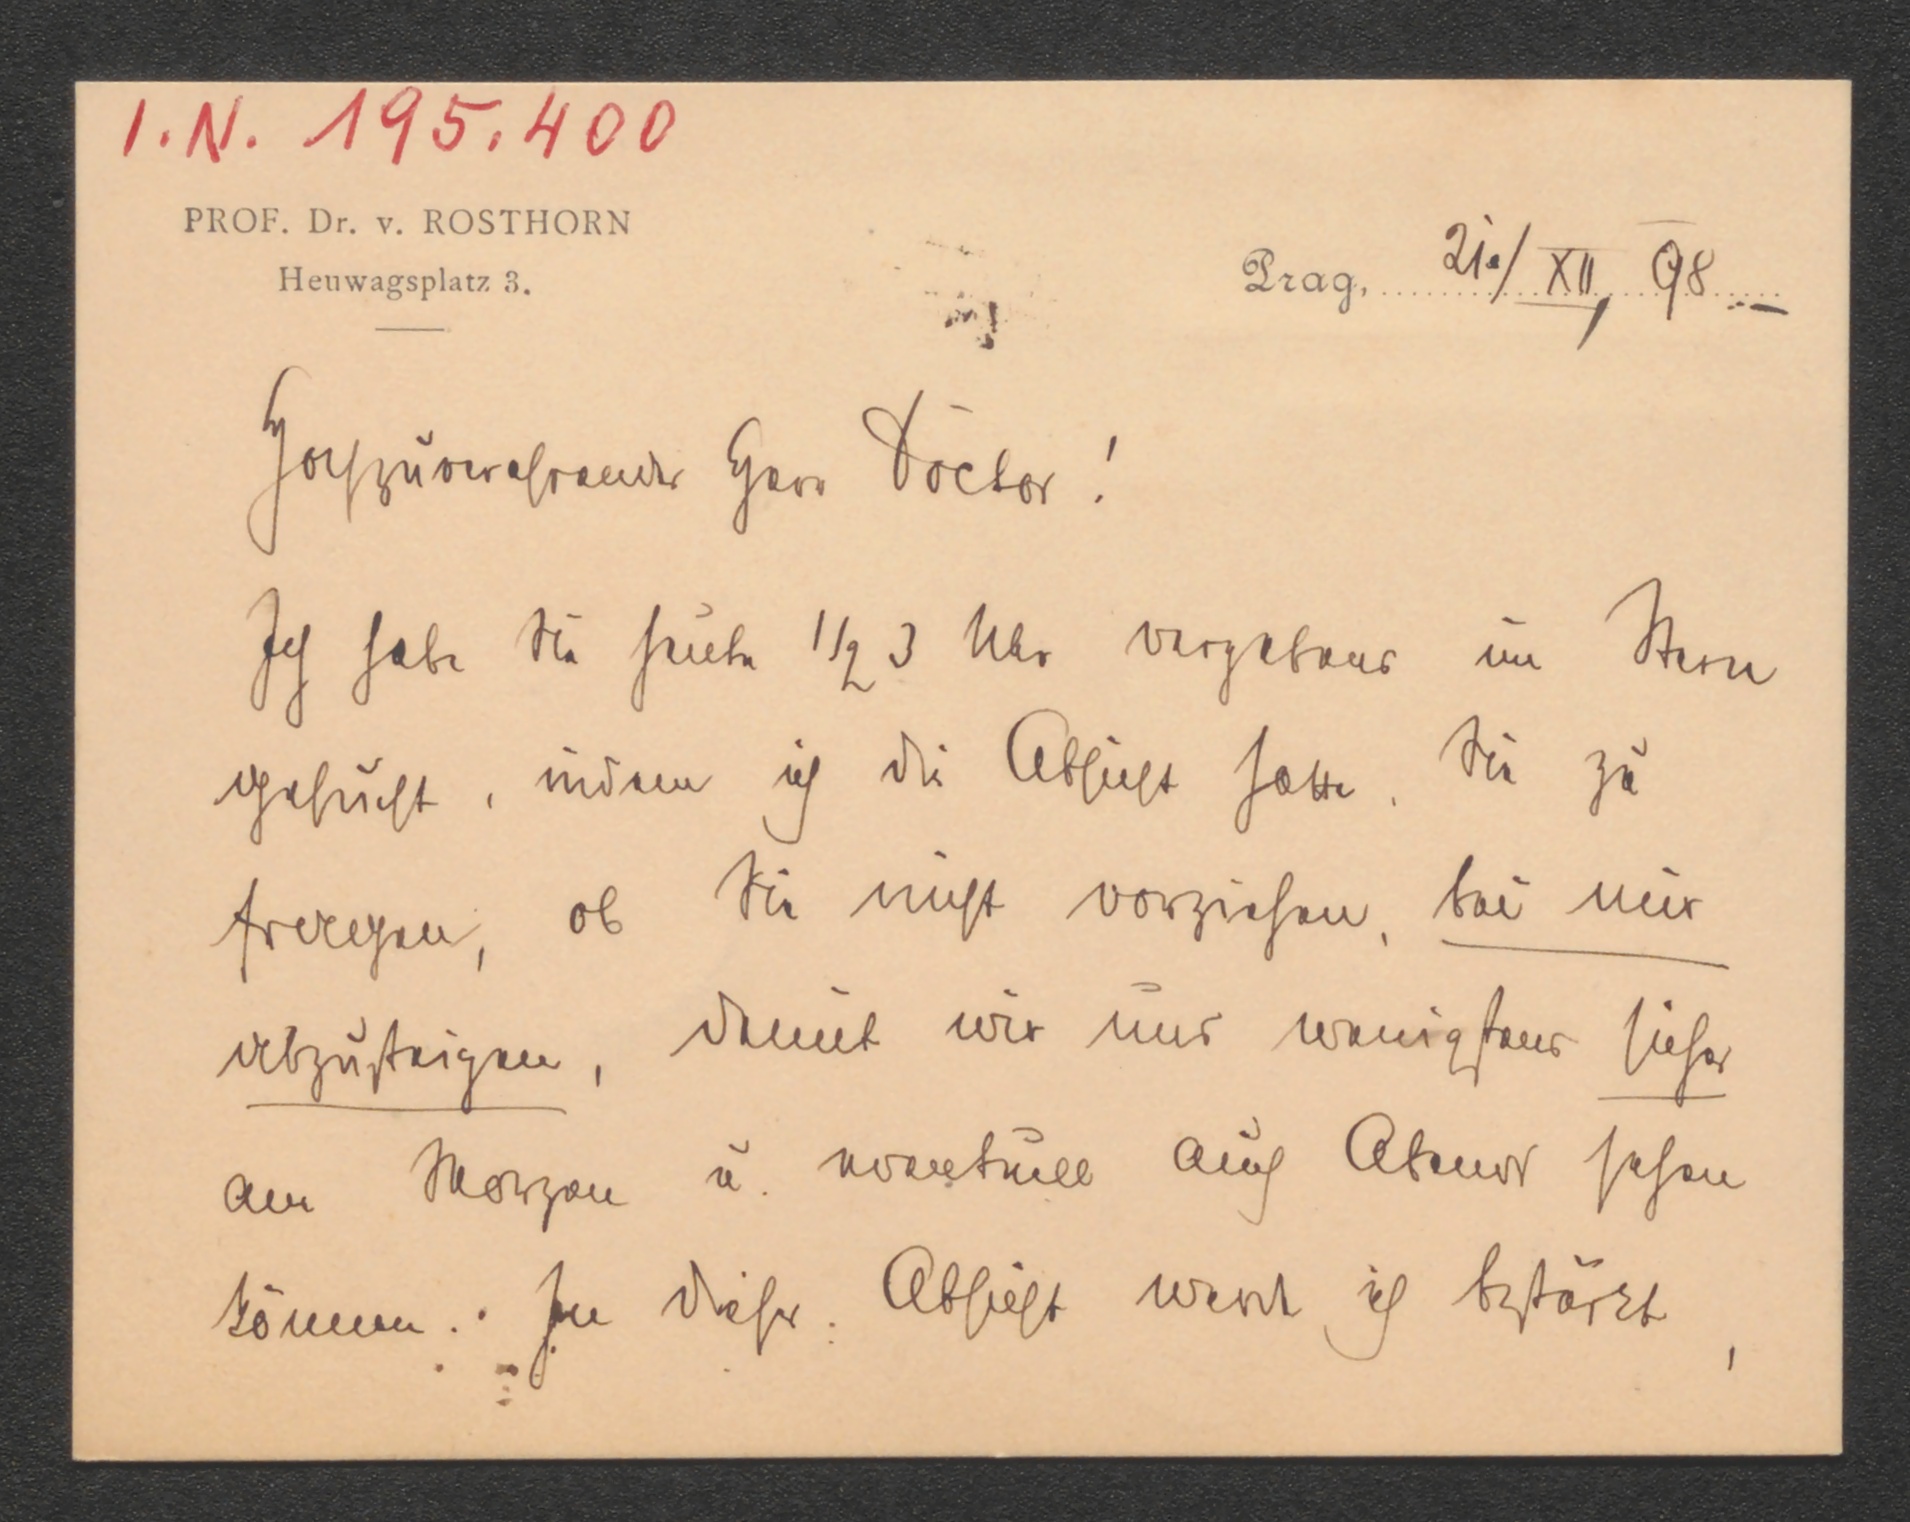 I.N. 195.400
PROF. Dr. v. ROSTHORN
Heuwagsplatz 3.
Prag, 21./XII, 98.
Hochzuverehrender Herr Doctor!
Ich habe Sie heute 1/2 3 Uhr vergebens im Stern
gesucht, indem ich die Absicht hatte, Sie zu
fragen, ob Sie nicht vorziehen, bei mir
abzusteigen, damit wir uns wenigstens sicher
am Morgen u. eventuell auch Abend sehen
können. In dieser Absicht werde ich bestärkt,